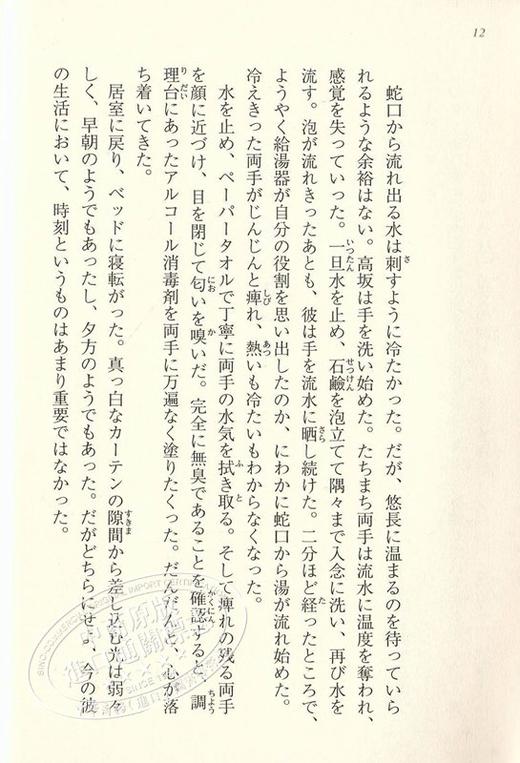 12
蛇口から流れ出る水は刺すように冷たかった。だが、悠長に温まるのを待っていら
れるような余裕はない。高坂は手を洗い始めた。たちまち両手は流水に温度を奪われ、
感覚を失っていった。一旦水を止め、石鹼を泡立てて隅々まで入念に洗い、再び水を
流す。泡が流れきったあとも、彼は手を流水に晒し続けた。二分ほど経ったところで、
ようやく給湯器が自分の役割を思い出したのか、にわかに蛇口から湯が流れ始めた。
冷えきった両手がじんじんと痺れ、熱いも冷たいもわからなくなった。
水を止め、ペーパータオルで丁寧に両手の水気を拭き取る。そして痺れの残る両手
を顔に近づけ、目を閉じて匂いを嗅いだ。完全に無臭であることを確認すると、調
理台にあったアルコール消毒剤を両手に万遍なく塗りたくった。だんだんと、心が落
ち着いてきた。
居室に戻り、ベッドに寝転がった。真っ白なカーテンの隙間から差し込む光は弱々
しく、早朝のようでもあったし、夕方のようでもあった。だがどちらにせよ、今の彼
の生活において、時刻というものはあまり重要ではなかった。